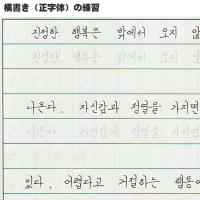 横書き（正字体）の練習
진정한 행복은 밖에서 오지 않
진정한 행복은 밖에서 오지 않
나온다. 자신감과 정열을 가지면
나온다. 자신감과 정열을 가지면
있다. 어렵다고 거절하는 행동이